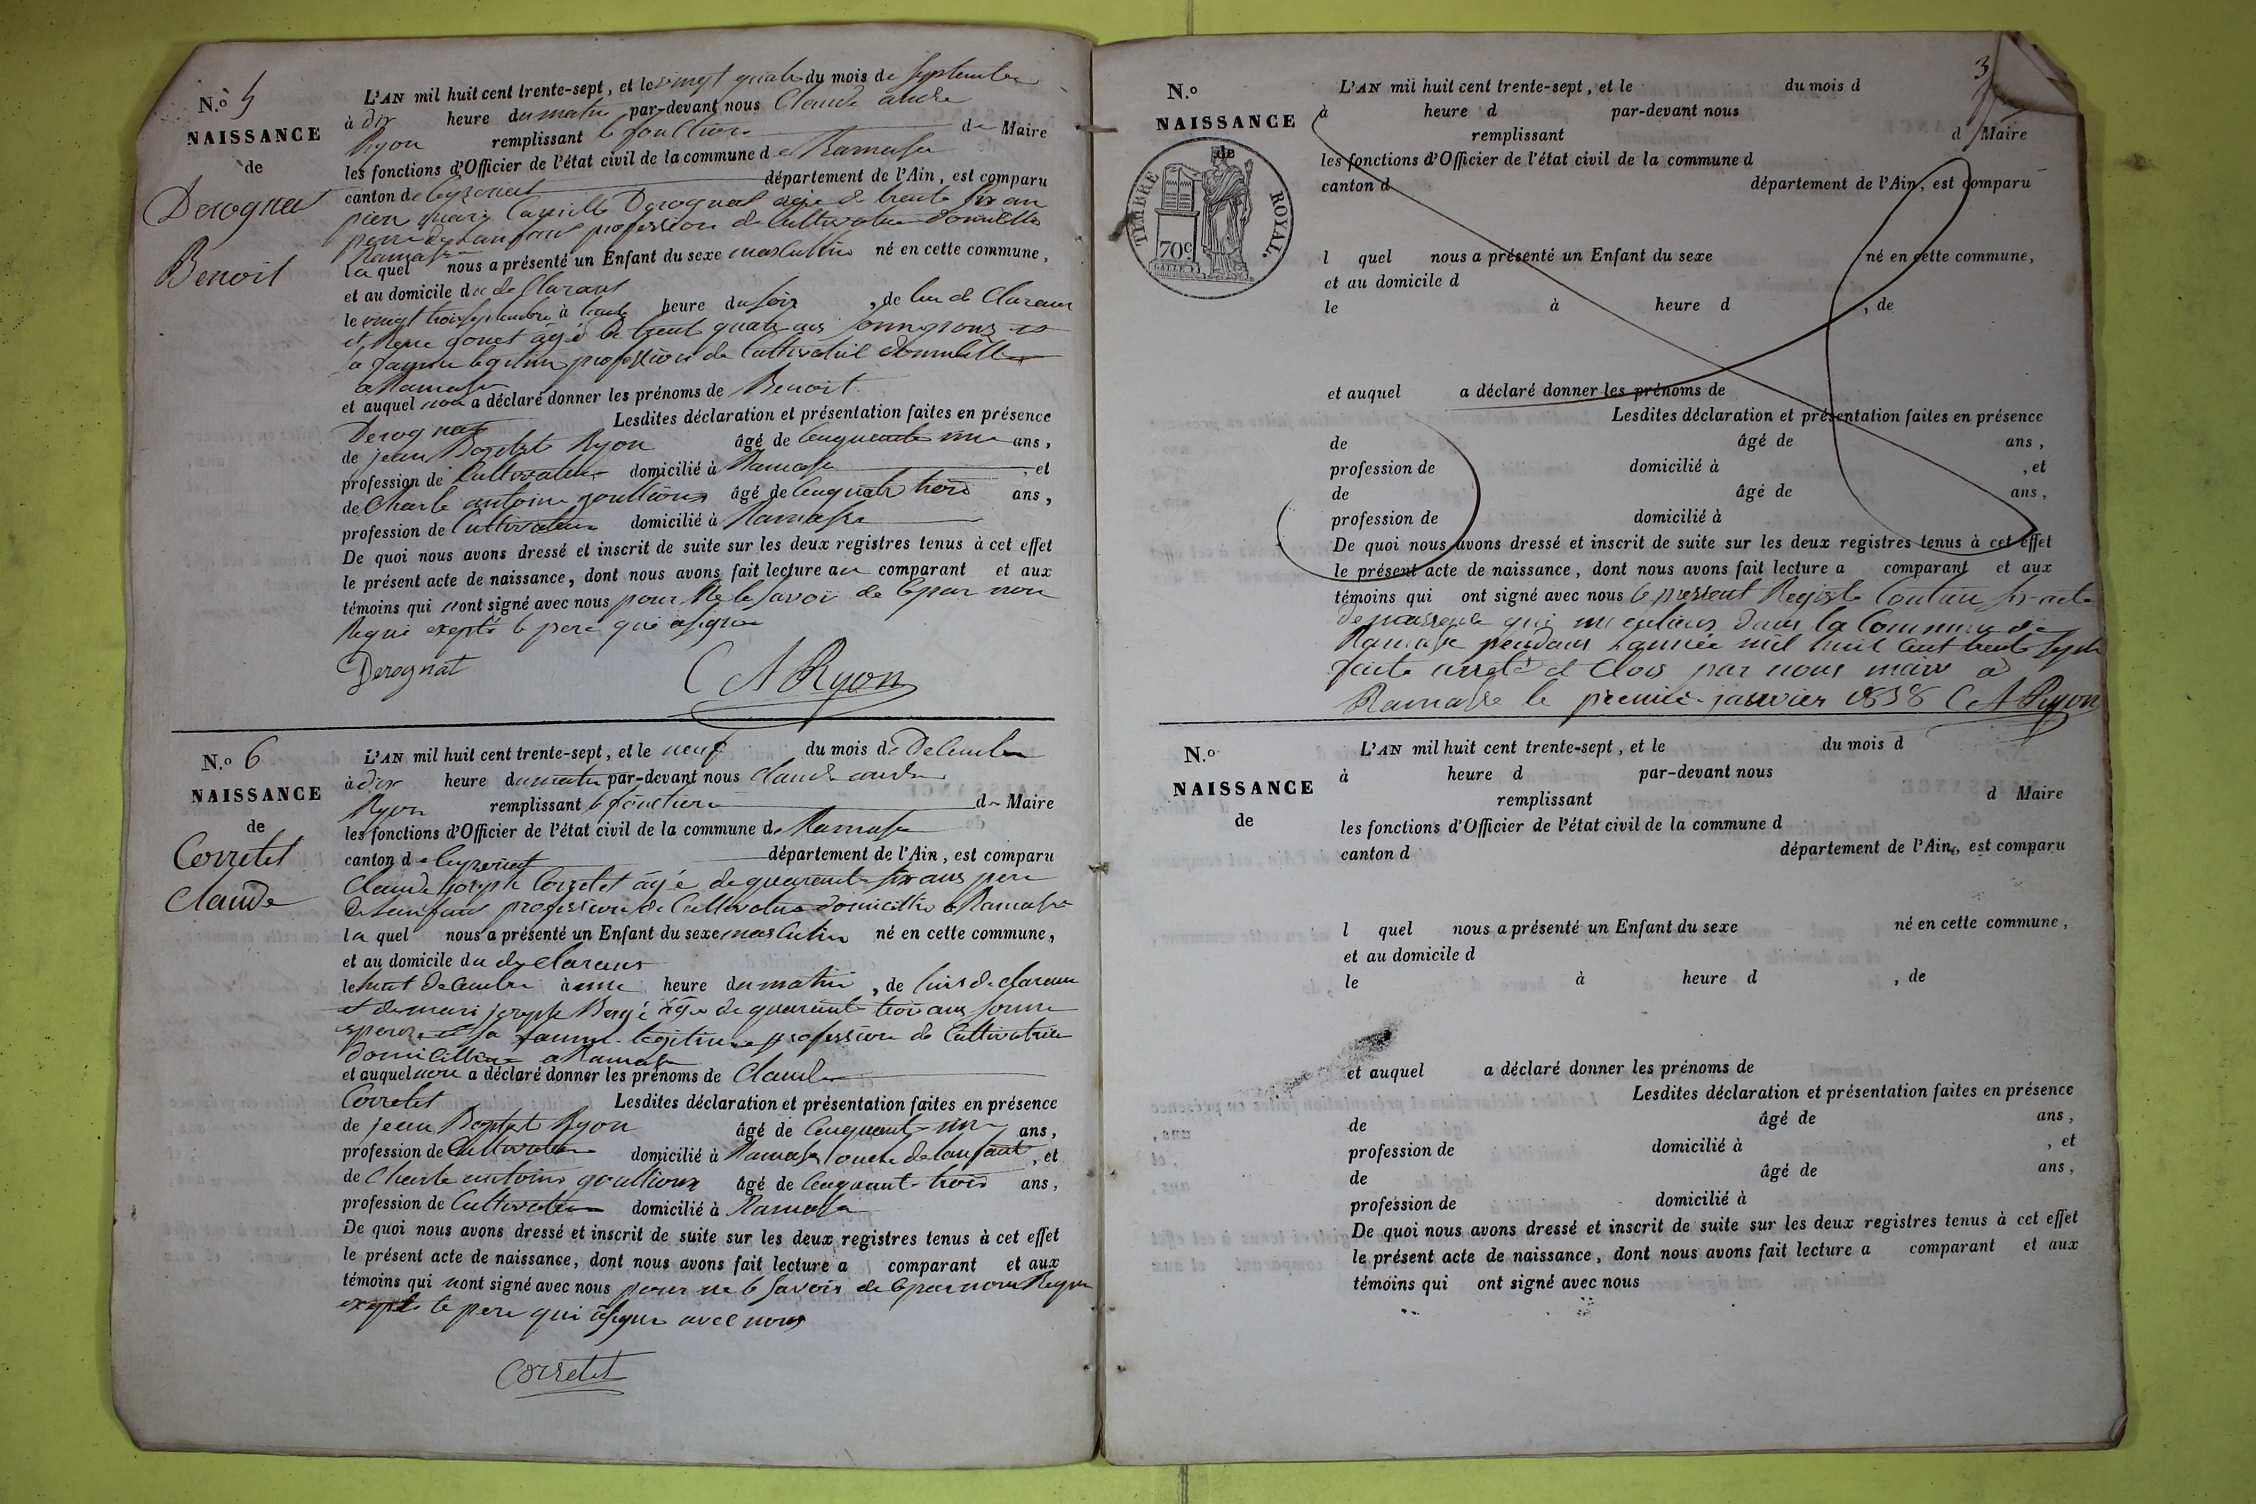 N.o 5
NAISSANCE
de
Derognat
Benoit
L'AN mil huit cent trente-sept, et le vingt quatre du mois de septembre
à dix heure du matin par-devant nous Claude andre
Ryon remplissant le fonction de Maire
les fonctions d'Officier de l'état civil de la commune de Ramasse
canton de Ceyzeriat département de l'Ain, est comparu
pierre marie Camille Derognat agé de trente six an
pere de lanfant profession de Cultivateur domicillié
Ramasse
la quel nous a présenté un Enfant du sexe masculin né en cette commune,
et au domicile du de Clarant
le vingt trois septembre à heure du soir, de lui de Clarant
et gouet âgé de trent quatre ans
sa famme legitime profession de Cultivatrice domicillié
a Ramasse
et auquel nou a déclaré donner les prénoms de Benoit
Derognat Lesdites déclaration et présentation faites en présence
de jean Baptist Ryon âgé de Cinquante une ans,
profession de Cultivateur domicilié à Ramasse, et
de Charle antoine goultioux âgé de Cinquante trois ans,
profession de Cultivateur domicilié à Ramasse
De quoi nous avons dressé et inscrit de suite sur les deux registres tenus à cet effet
le présent acte de naissance, dont nous avons fait lecture au comparant et aux
témoins qui nont signé avec nous pour Ne le savoir de Cepar nou
Requi exepté le pere qui asigne
Derognat C A Ryon
N.o 6
NAISSANCE
de
Corretet
Claude
L'AN mil huit cent trente-sept, et le neuf du mois de Decembre
à dix heure du matin par-devant nous Claude andre
Ryon remplissant le fonction de Maire
les fonctions d'Officier de l'état civil de la commune de Ramasse
canton de Ceyzeriat département de l'Ain, est comparu
Claude joseph Corretet âgé de quarante six ans pere
de lanfant profession de Cultivateur domicillié a Ramasse
la quel nous a présenté un Enfant du sexe masculin né en cette commune,
et au domicile du de clarans
le huit decembre à une heure du matin, de lui de clarant
et de mari joseph Bergé âgé de quarante trois ans
sa famme legitime profession de Cultivatrice
domicilliée a Ramasse
et auquel nou a déclaré donner les prénoms de Claude
Corretet Lesdites déclaration et présentation faites en présence
de jean Baptist Ryon âgé de Cinquant une ans,
profession de Cultivateur domicilié à Ramasse oncle de lanfant, et
de Charle antoine goultioux âgé de Cinquant trois ans,
profession de Cultivateur domicilié à Ramasse
De quoi nous avons dressé et inscrit de suite sur les deux registres tenus à cet effet
le présent acte de naissance, dont nous avons fait lecture a comparant et aux
témoins qui nont signé avec nous pour ne le savoir de Cepar nous Requi
exepte le pere qui asigne avec nous
Corretet
3
N.o
NAISSANCE
de
TIMBRE ROYAL.
70c
L'AN mil huit cent trente-sept, et le du mois d
à heure d par-devant nous
remplissant d Maire
les fonctions d'Officier de l'état civil de la commune d
canton d département de l'Ain, est comparu
l quel nous a présenté un Enfant du sexe né en cette commune,
et au domicile d
le à heure d , de
et auquel a déclaré donner les prénoms de
Lesdites déclaration et présentation faites en présence
de âgé de ans,
profession de domicilié à , et
de âgé de ans,
profession de domicilié à
De quoi nous avons dressé et inscrit de suite sur les deux registres tenus à cet effet
le présent acte de naissance, dont nous avons fait lecture a comparant et aux
témoins qui ont signé avec nous le present Registe Contien six acte
de naissance qui dans la Commune de
Ramasse pendant lannée mil huit Cent trente sept
faite arreté et Clos par nous maire a
Ramasse le premié janvier 1838 C A Ryon
N.o
NAISSANCE
de
L'AN mil huit cent trente-sept, et le du mois d
à heure d par-devant nous
remplissant d Maire
les fonctions d'Officier de l'état civil de la commune d
canton d département de l'Ain, est comparu
l quel nous a présenté un Enfant du sexe né en cette commune,
et au domicile d
le à heure d , de
et auquel a déclaré donner les prénoms de
Lesdites déclaration et présentation faites en présence
de âgé de ans,
profession de domicilié à , et
de âgé de ans,
profession de domicilié à
De quoi nous avons dressé et inscrit de suite sur les deux registres tenus à cet effet
le présent acte de naissance, dont nous avons fait lecture a comparant et aux
témoins qui ont signé avec nous